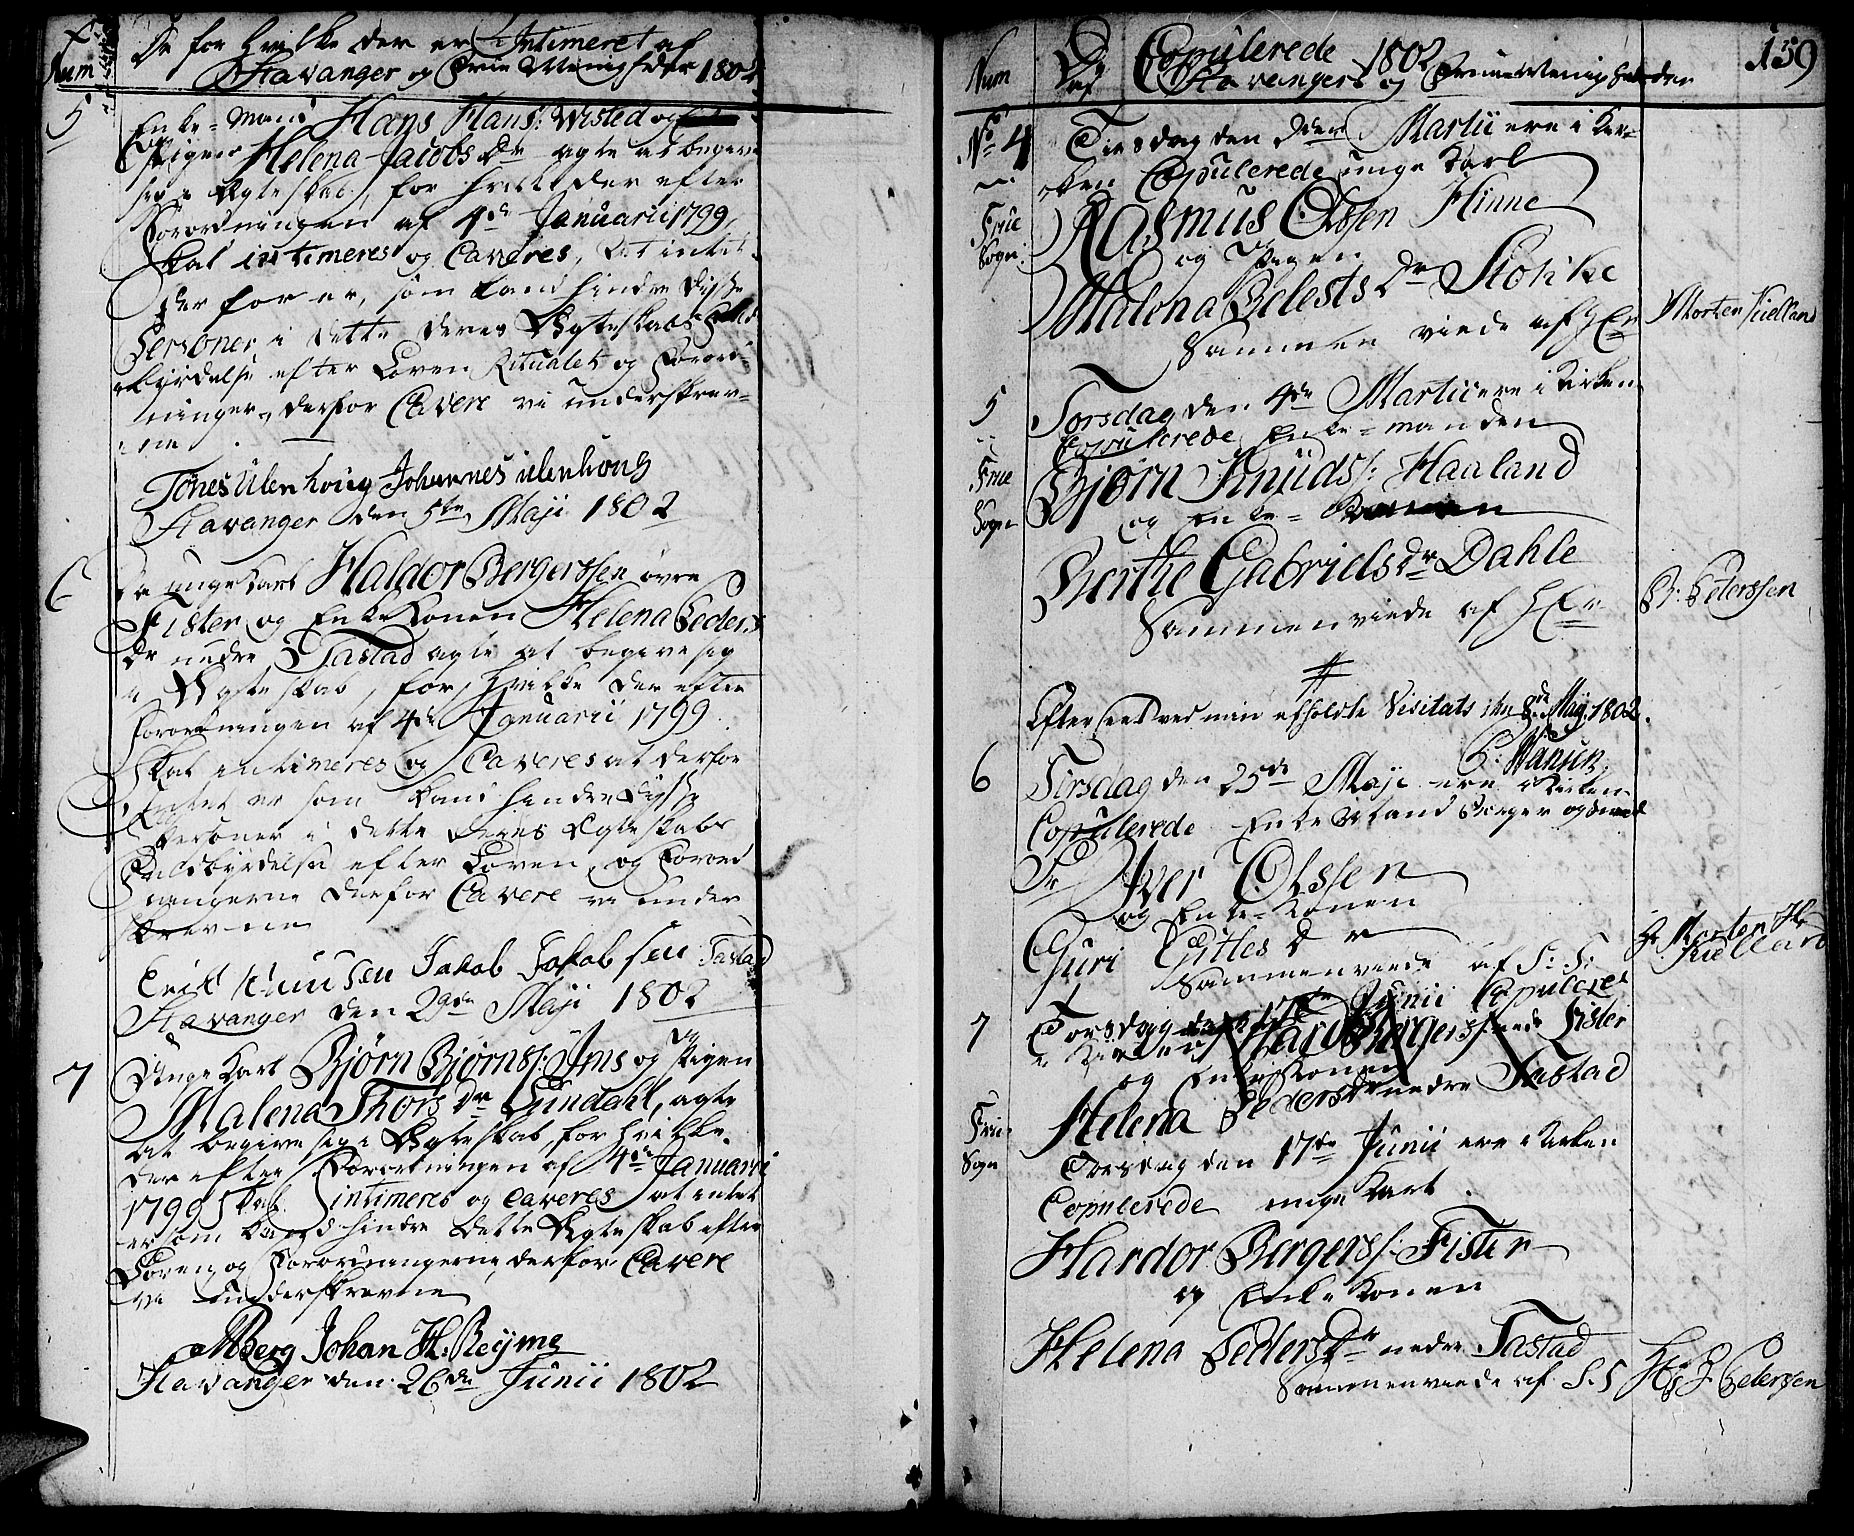 Num
De for Hvilke der er Intimeret af
Stavanger og Frue Menigheder 1802
5
Enke-Mand Hans Hans: Wisted og
Pigen Helena Jacobs Dr agte at begive
sig i Ægteskab, for Hvilke der efter
Forordningen af 4de Januarii 1799,
skal intimeres og Caveres, at intet
der for er, som kand hindre disse
Personer i dette deres Ægteskabs Fuld
byrdelse efter Loven Ritualet og Forord-
ninger, derfor Cavere vi underskrev-
ne
Tönes Ulenhoug Johannes ulenhoug
Stavanger den 5te Maji 1802
6
Da unge Karl Haldor Bergerssen øvre
Fister og Enke Konen Helena Peders
Dr nedre Tastad agte at begive sig
i Ægteskab, for Hvilke der efter
Forordningen af 4de Januarii 1799
skal intimeres og Caveres at derfor
intet er som kand hindre disse
Personer i dette deres Ægteskabs
Fuldbyrdelse efter Loven, og Forord
ningerne derfor Cavere vi under
skrevne
Erik Knudsen Jakob Jakobsen Tastad
Stavanger den 29de Maji 1802
7
Unge Karl Bjørn Bjørns: Ims og Pigen
Malena Thors Dr Lundahl, agte
at begive sig i Ægteskab, for Hvilke
der efter Forordningen af 4de Januarii
1799 skal intimeres og Caveres at intet
er som kand hindre dette Ægteskab efter
Loven og Forordningerne, derfor Cavere
vi underskrevne
Berg Johan H. Reÿme
Stavanger den 26de Junii 1802
Num
De Copulerede 1802
af Stavangers og Frue Menigheder
139
No 4
Frue
Sogn
Tirsdag den 2den Martii ere i Kir-
ken Copulerede unge Karl
Rasmus Olssen Hinne
og Pigen
Malena Belests Dr Stokke
Sammen viede af HEr
Morten Kielland
5
Frue
Sogn
Torsdag den 4de Martii ere i Kirken
Copulerede Enke-manden
Bjørn Knuds: Haaland
og Enke-Konen
Berthe Gabriels Dr Dahle
Sammenviede af HEr
P. Peterssen
Efterseet ved min afholdte Visitats den 8de Maij 1802.
P: Hansen
6
Tirsdag den 25de Maji ere i Kirken
Copulerede Enke Mand Borger og
Sr Iver Olssen
og Enke-Konen
Guri Gitles Dr
Sammenviede af S: T:
Hr Morten H:
Kielland
7
Torsdag den 17de Junii Copuleret
i Kirken Haldor Bergers: Fister
og Enke Konen
Helena Peders Dr nedre Tastad
Frue
Sogn
Torsdag den 17de Junii ere i Kirken
Copulerede unge Karl
Hardor Bergers: Fister
og Enke Konen
Helena Peders Dr nedre Tastad
Sammenviede af S. T
Hr P. Peterssen